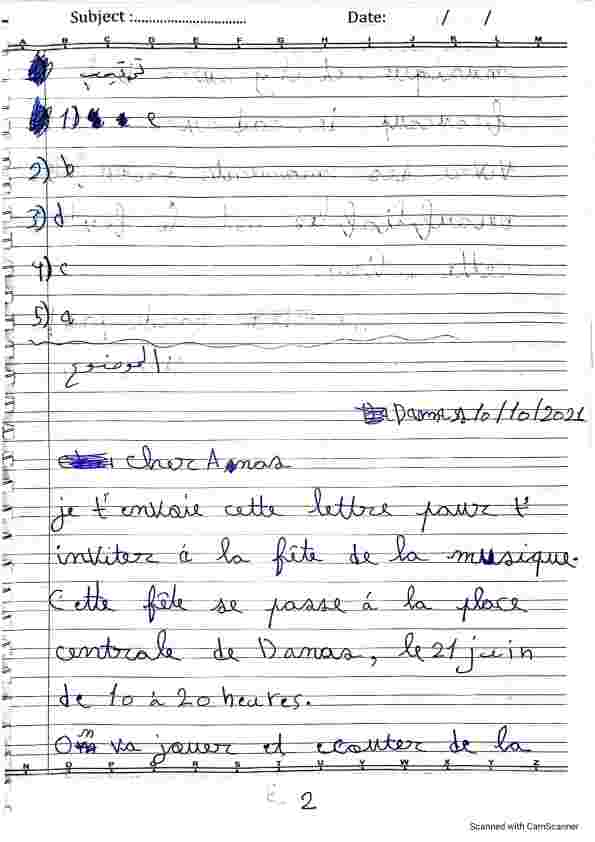 Subject :............................... Date: / /
A B C D E F G H I J K L M
ترتيب
1) e
2) b
3) d
4) c
5) a
الموضوع :
Damas 10/10/2021
cher Anas
je t'envoie cette lettre pour t'
inviter á la fête de la musique.
Cette fête se passe á la place
centrale de Damas, le 21 juin
de 10 à 20 heures.
On va jouer et ecouter de la
N O P Q R S T U V W X Y Z
2
Scanned with CamScanner